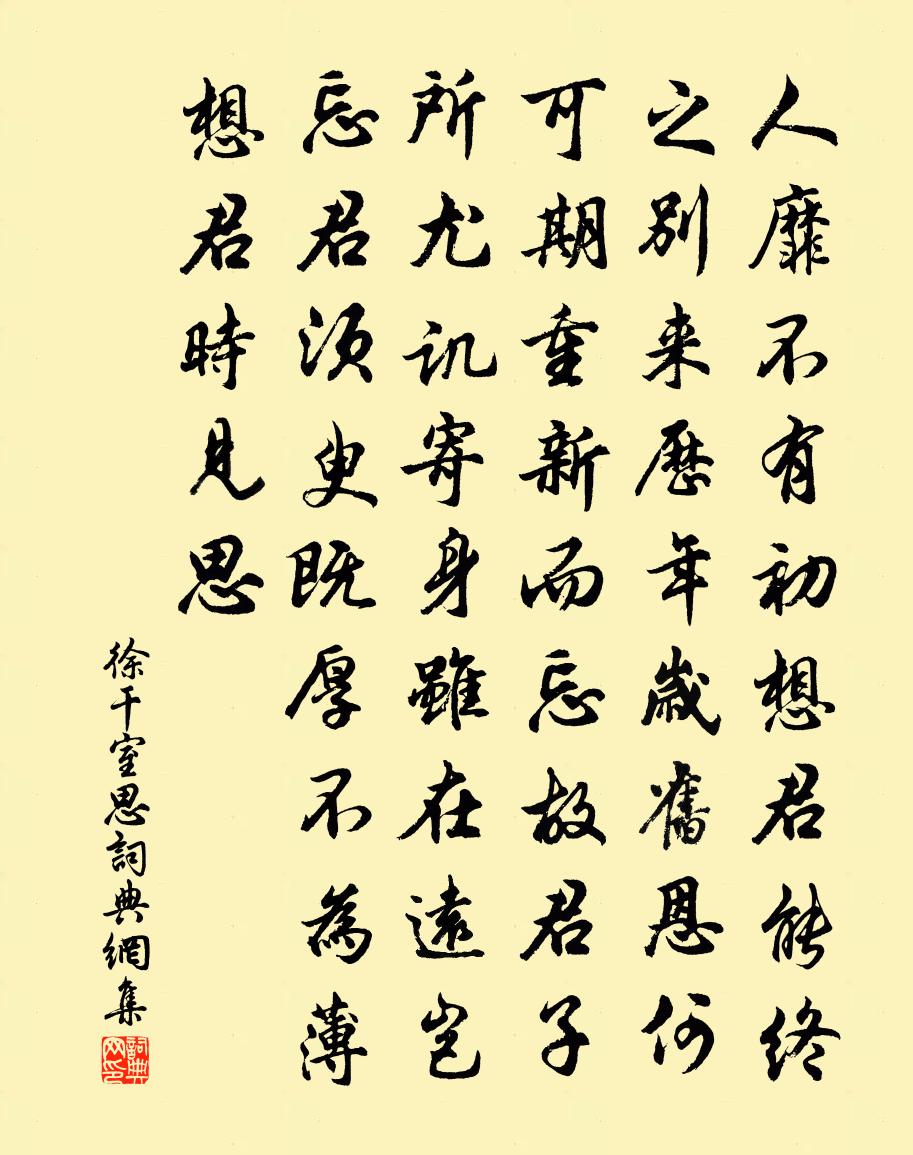 人靡不有初想君能终
之别来歷年歲舊恩何
可期重新而忘故君子
所尤讥寄身雖在遠岂
忘君须臾既厚不為薄
想君時見思
徐干室思詞典網集
詞典网印